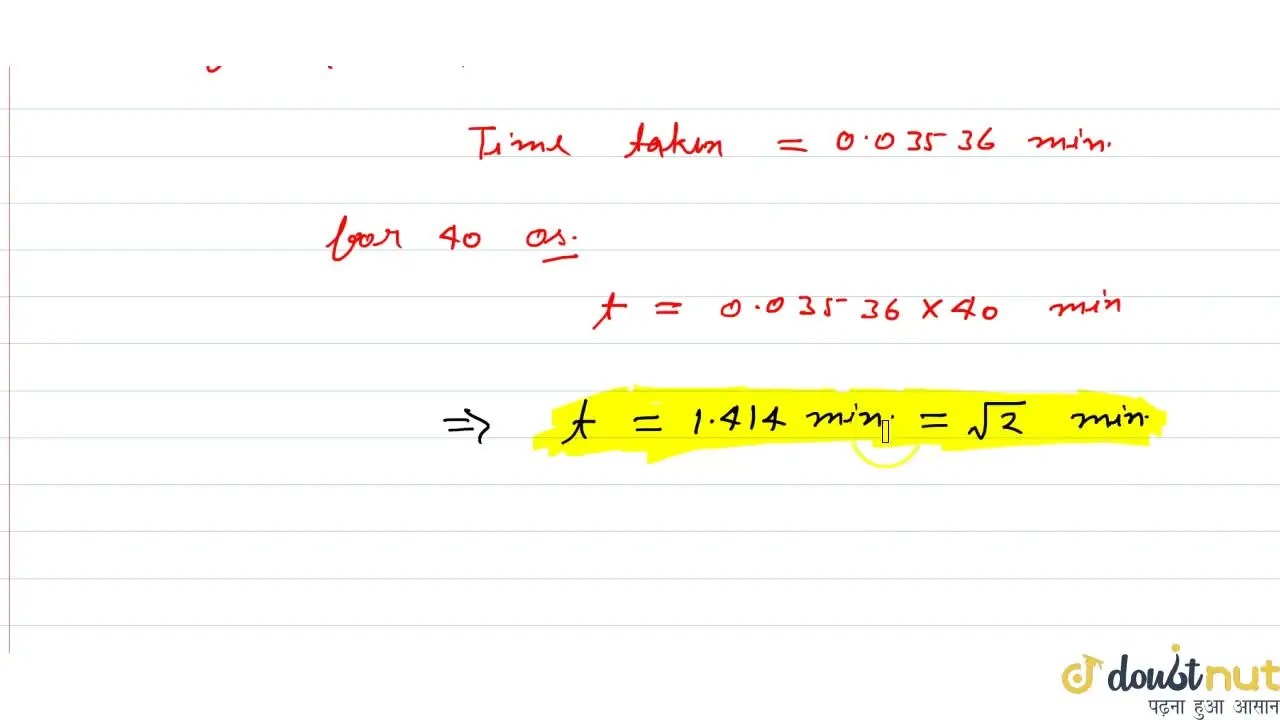 Time taken = 0.03536 min.
for 40 os.
t = 0.03536 × 40 min
⇒ t = 1.414 min. = √2 min.
doubtnut
पढ़ना हुआ आसान